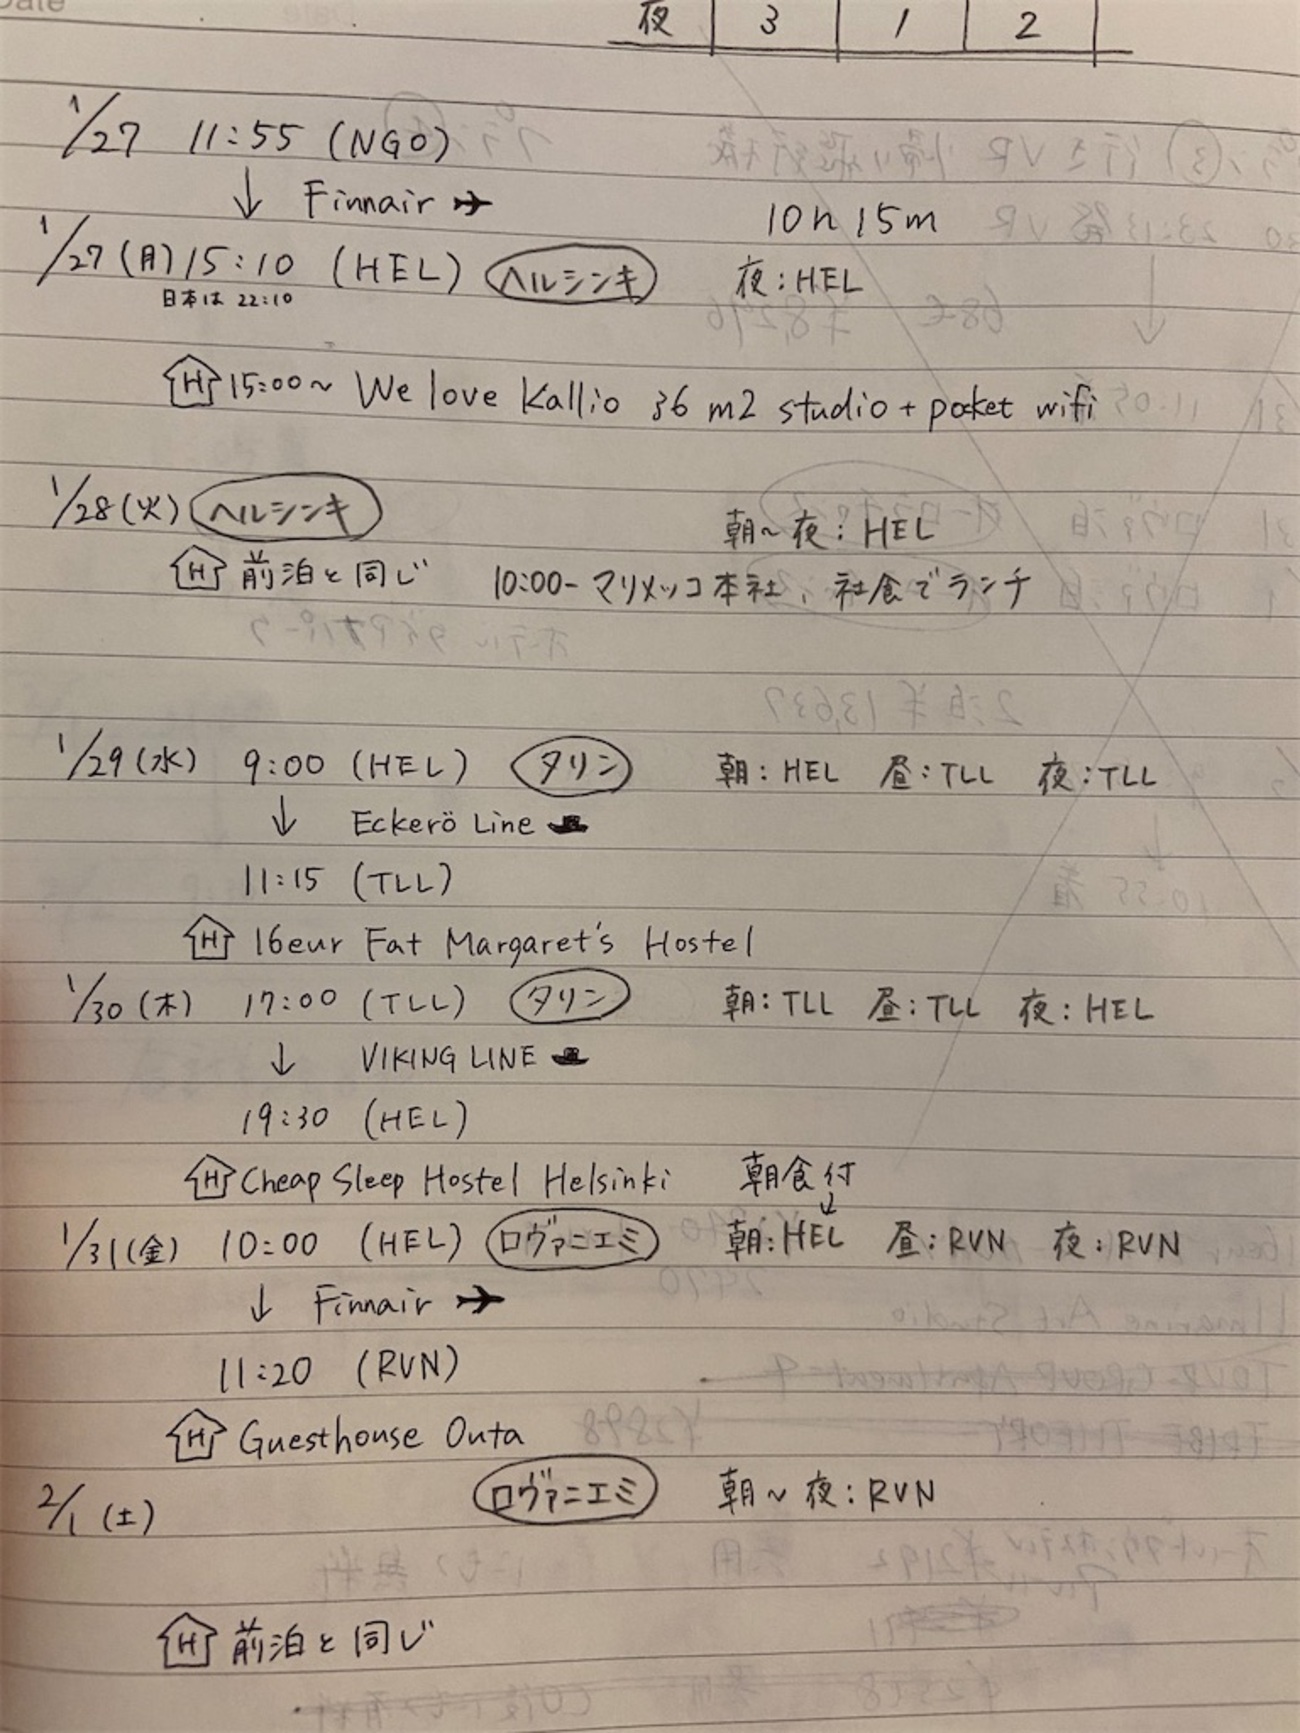 Date
夜 3 1 2
1/27 11:55 (NGO)
↓ Finnair
10h 15m
1/27(月)15:10 (HEL) ヘルシンキ 夜:HEL
日本は 22:10
H 15:00~ We love Kallio 36 m2 studio + pocket wifi
1/28(火) ヘルシンキ 朝~夜:HEL
H 前泊と同じ 10:00-マリメッコ本社、社食でランチ
1/29(水) 9:00 (HEL) タリン 朝:HEL 昼:TLL 夜:TLL
↓ Eckerö Line
11:15 (TLL)
H 16eur Fat Margaret's Hostel
1/30(木) 17:00 (TLL) タリン 朝:TLL 昼:TLL 夜:HEL
↓ VIKING LINE
19:30 (HEL)
H Cheap Sleep Hostel Helsinki 朝食付
↓
1/31(金) 10:00 (HEL) ロヴァニエミ 朝:HEL 昼:RVN 夜:RVN
↓ Finnair
11:20 (RVN)
H Guesthouse Outa
2/1(土) ロヴァニエミ 朝~夜:RVN
H 前泊と同じ